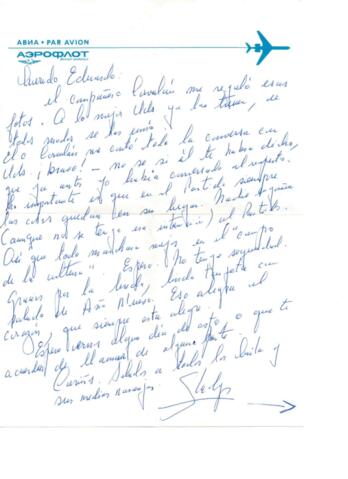 АВИА • PAR AVION
АЭРОФЛОТ
Querido Eduardo:
el compañero Corvalán me regaló esas
fotos. A lo mejor Uds ya las tienen, de
todos modos se las envío.
El c Corvalán me contó toda la conversa con
Uds. ¡bravo! — no se si él te había dicho,
que ya antes yo había conversado al respecto.
Lo importante es que en el Partido siempre
las cosas quedan en su lugar. Nadie engaña
(aunque no se tenga esa intención) al Partido.
Así que todo marchará mejor en el "campo
de la cultura". Espero. No tengo seguridad.
Gracias por la linda, linda tarjeta con
saludo de Año Nuevo. Eso alegra el
corazón, que siempre está alegre.
Espero vernos algún día de estos, o que te
acuerdes de llamarme de alguna parte.
Cariños. Saludos a todos los
y
sus medias naranjas.